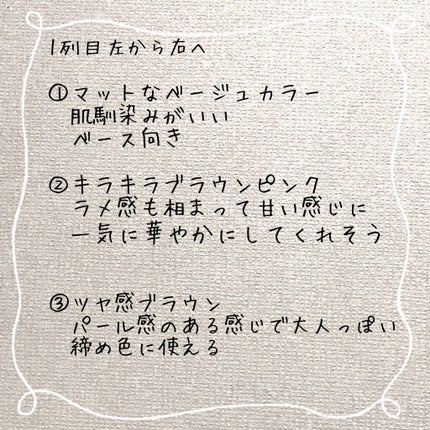 1列目左から右へ
①マットなベージュカラー
肌馴染みがいい
ベース向き
②キラキラブラウンピンク
ラメ感も相まって甘い感じに
一気に華やかにしてくれそう
③ツヤ感ブラウン
パール感のある感じで大人っぽい
締め色に使える